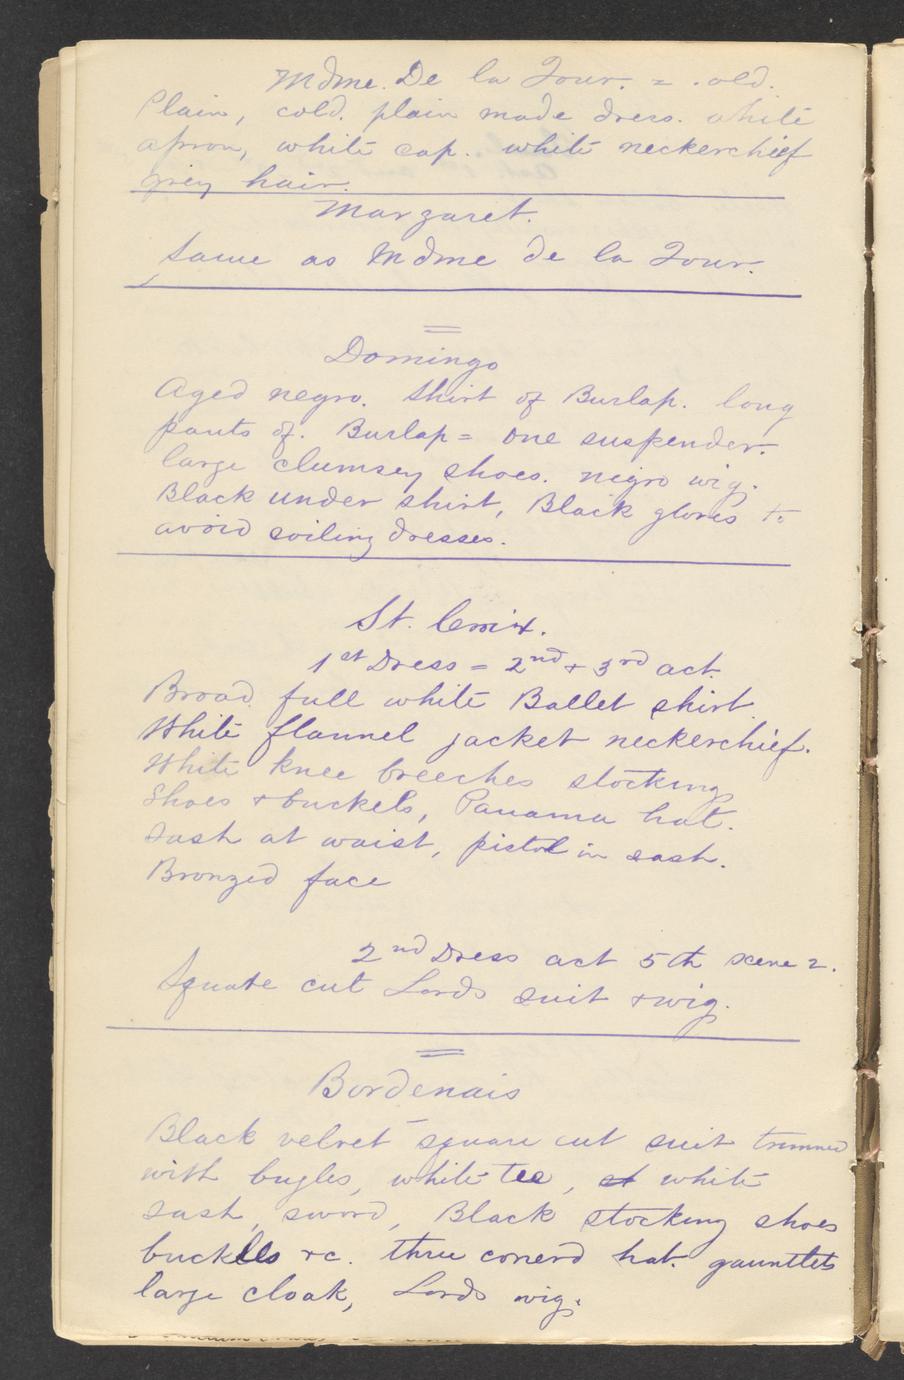 Mdme. De la Tour. = . old.
Plain, cold. plain made dress. white
apron, white cap. white neckerchief
grey hair.
Margaret.
Same as Mdme de la Tour.
Domingo
Aged negro. Shirt of Burlap. long
pants of. Burlap = one suspender.
large clumsey shoes. negro wig.
Black under shirt, Black gloves to
avoid soiling dresses.
St. Croix.
1st Dress = 2nd + 3rd act.
Broad full white Ballet shirt
White flannel jacket neckerchief.
White knee breeches stocking
Shoes + buckels, Panama hat.
Sash at waist, pistol in sash.
Bronzed face
2nd Dress act 5th scene 2.
Square cut Lords suit + wig.
Bordenais
Black velvet square cut suit trimmed
with bugles, white tee, white
sash, sword, Black stocking shoes
buckles +c. three conerd hat. gauntlets
large cloak, Lords wig.